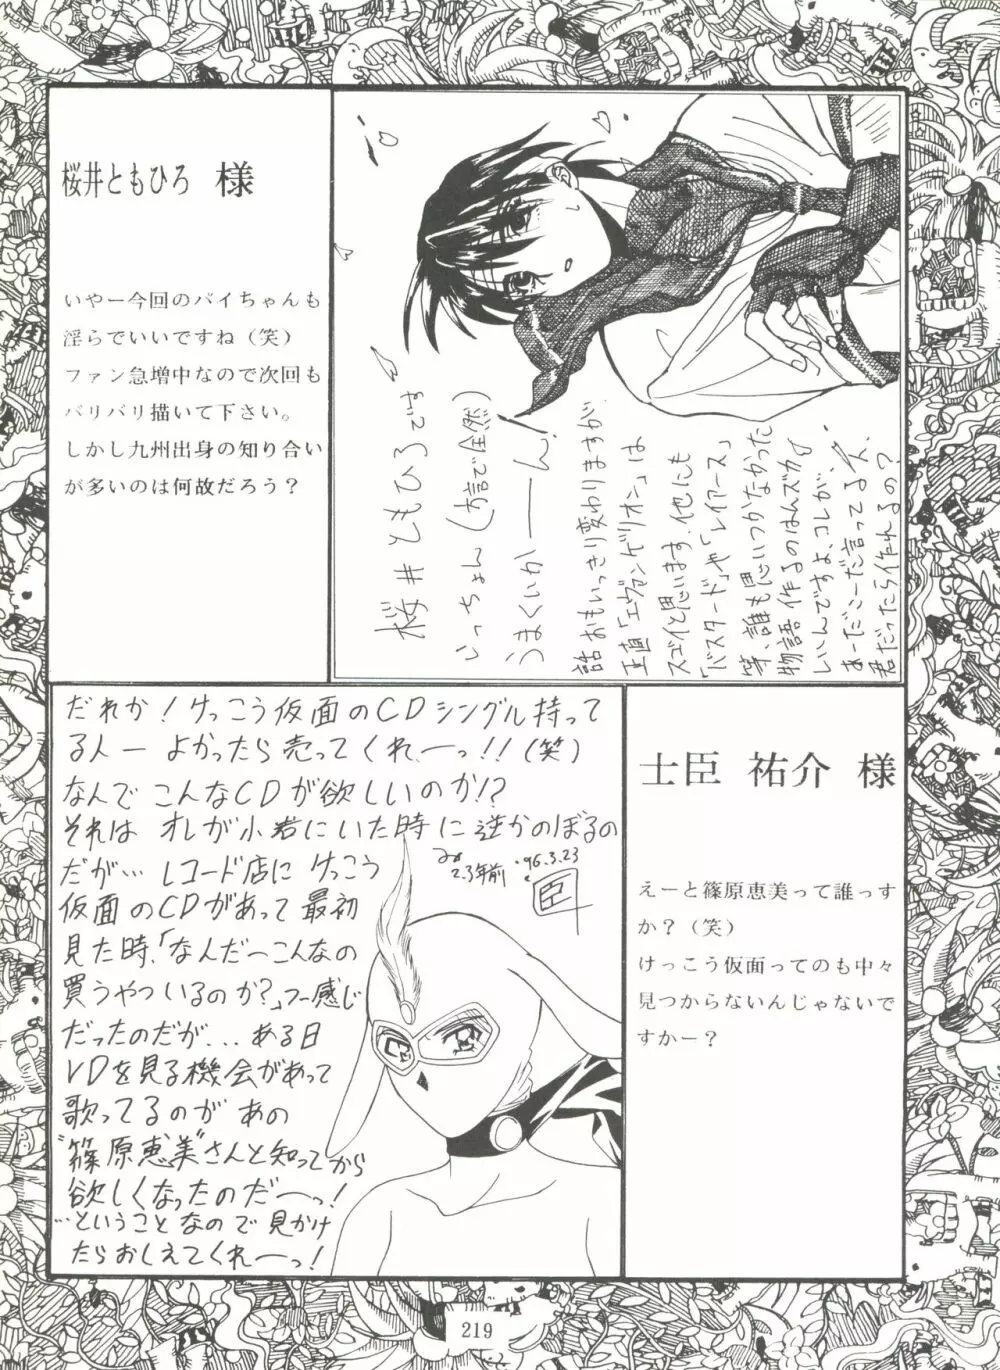 桜井ともひろ 様
いやー今回のバイちゃんも
淫らでいいですね（笑）
ファン急増中なので次回も
バリバリ描いて下さい。
しかし九州出身の知り合い
が多いのは何故だろう？
桜井ともひろです
いっちょん(方言で全然)
うまくいかーーん。
話おもいっきり変わりますが
正直「エヴァンゲリオン」は
スゴイと思います。他にも
「バスタード」や「レイアース」
等、誰も思いつかなかった
物語作るのはムズカシ
いんですよ、コレが、
あーだこーだ言ってる人、
君だったら作れるの？
だれか！けっこう仮面のCDシングル持って
る人ー よかったら売ってくれーっ!!（笑）
なんで こんなCDが欲しいのか!?
それは オレが小岩にいた時に逆かのぼるの
だが… レコード店に けっこう
2.3年前
'96.3.23
臣
仮面のCDがあって 最初
見た時、「なんだーこんなの
買うやついるのか?」フー感じ
だったのだが... ある日
LDを見る機会があって
歌ってるのが あの
“篠原恵美”さんと知ってから
欲しくなったのだーっ!
…ということなので 見かけ
たらおしえてくれーっ!
士臣 祐介 様
えーと篠原恵美って誰っす
か？（笑）
けっこう仮面ってのも中々
見つからないんじゃないで
すかー？
219